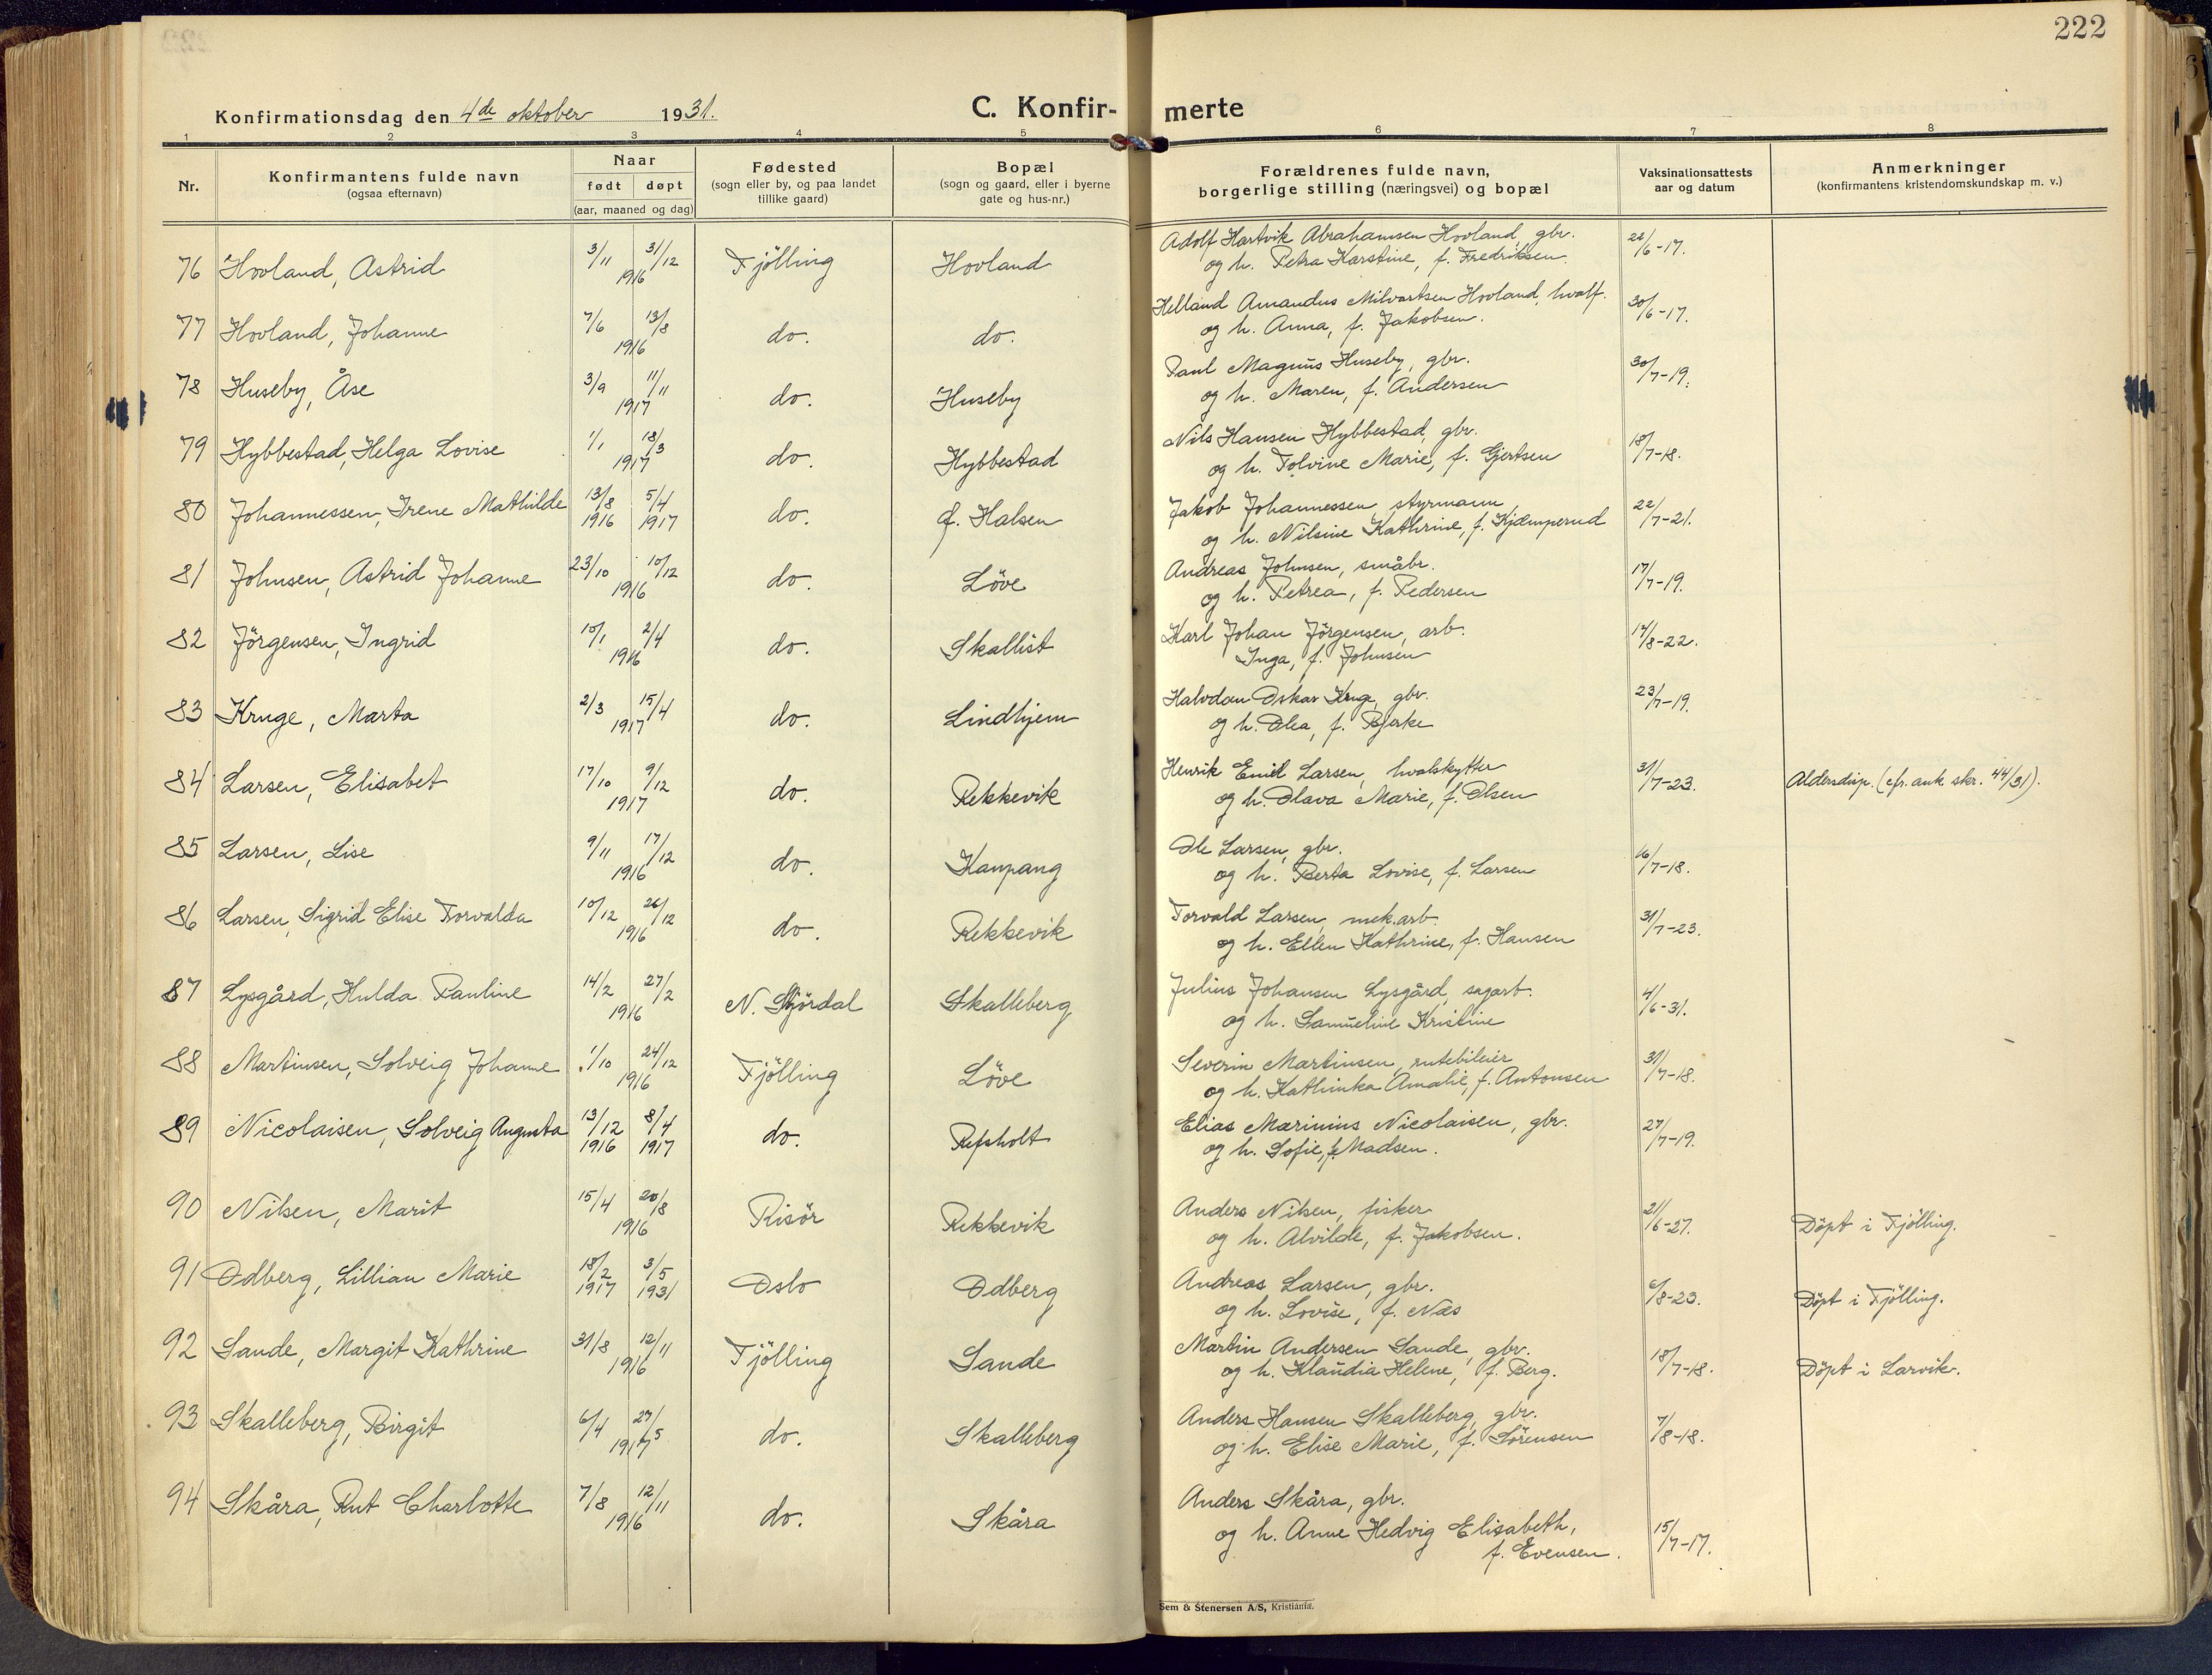 222
Konfirmationsdag den 4de oktober 1931.
C. Konfirmerte
1 2 3 4 5 6 7 8
Nr.
Konfirmantens fulde navn
(ogsaa efternavn)
Naar
født døpt
(aar, maaned og dag)
Fødested
(sogn eller by, og paa landet
tillike gaard)
Bopæl
(sogn og gaard, eller i byerne
gate og hus-nr.)
Forældrenes fulde navn,
borgerlige stilling (næringsvei) og bopæl
Vaksinationsattests
aar og datum
Anmerkninger
(konfirmantens kristendomskundskap m. v.)
76 Hovland, Astrid 3/11 31/12 1916 Tjölling Hovland Adolf Hartvik Abrahamsen Hovland, gbr. 22/6-17.
og h. Petra Karstine, f. Fredriksen.
77 Hovland, Johanne 7/6 13/8 1916 do. do. Helland Amandus Milvartsen Hovland, hvalf. 30/6-17.
og h. Anna, f. Jakobsen.
78 Huseby, Åse 3/9 11/11 1917 do. Huseby Paul Magnus Huseby, gbr. 30/7-19.
og h. Maren, f. Andersen
79 Hybbestad, Helga Lovise 1/1 18/3 1917 do. Hybbestad Nils Hansen Hybbestad, gbr. 18/7-18.
og h. Tolvine Marie, f. Gjertsen
80 Johannessen, Irene Mathilde 13/8 1916 5/4 1917 do. Halsen Jakob Johannessen, styrmann 22/7-21.
og h. Nilsine Kathrine, f. Kjæmperud
81 Johnsen, Astrid Johanne 23/10 10/12 1916 do. Löve Andreas Johnsen, småbr. 17/7-19.
og h. Petrea, f. Pedersen
82 Jörgensen, Ingrid 10/1 2/4 1916 do. Skallist Karl Johan Jörgensen, arb. 14/8-22.
Inga, f. Johnsen
83 Kruge, Marta 2/3 15/4 1917 do. Lindhjem Halvdan Oskar Kruge, gbr. 23/7-19.
og h. Olea, f. Bjerke
84 Larsen, Elisabet 17/10 9/12 1917 do. Rekkevik Henrik Emil Larsen, hvalskytter 31/7-23. Aldersdisp. (cfr. ank. skr. 44/31).
og h. Olava Marie, f. Olsen
85 Larsen, Lise 9/11 17/12 1916 do. Kaupang Ole Larsen, gbr. 16/7-18.
og h. Berta Lovise, f. Larsen
86 Larsen, Sigrid Elise Torvalda 10/12 26/12 1916 do. Rekkevik Torvald Larsen, mek.arb. 31/7-23.
og h. Ellen Kathrine, f. Hansen
87 Lysgård, Hulda Pauline 14/2 27/2 1916 N. Stjördal Skalleberg Julius Johansen Lysgård, sagarb. 4/6-31.
og h. Samueline Kristine
88 Martinsen, Solveig Johanne 1/10 24/12 1916 Tjölling Löve Severin Martinsen, rutebileier 31/7-18.
og h. Kathinka Amalie, f. Antonsen
89 Nicolaisen, Solveig Augusta 13/12 1916 8/4 1917 do. Refsholt Elias Marinius Nicolaisen, gbr. 27/7-19.
og h. Sofie, f. Madsen.
90 Nilsen, Marit 15/4 20/8 1916 Risör Rekkevik Anders Nilsen, fisker 21/6-27. Döpt i Tjölling.
og h. Alvilde, f. Jakobsen.
91 Odberg, Lillian Marie 18/2 1917 3/5 1931 Oslo Odberg Andreas Larsen, gbr. 6/8-23. Döpt i Tjölling.
og h. Lovise, f. Næs
92 Sande, Margit Kathrine 31/8 12/11 1916 Tjölling Sande Martin Andersen Sande, gbr. 18/7-18. Döpt i Larvik.
og h. Klaudia Helene, f. Berg.
93 Skalleberg, Birgit 6/4 27/5 1917 do. Skalleberg Anders Hansen Skalleberg, gbr. 7/8-18.
og h. Elise Marie, f. Sörensen
94 Skåra, Rut Charlotte 7/8 12/11 1916 do. Skåra Anders Skåra, gbr. 15/7-17.
og h. Anne Hedvig Elisabeth,
f. Evensen.
Sem & Stenersen A/S, Kristiania.